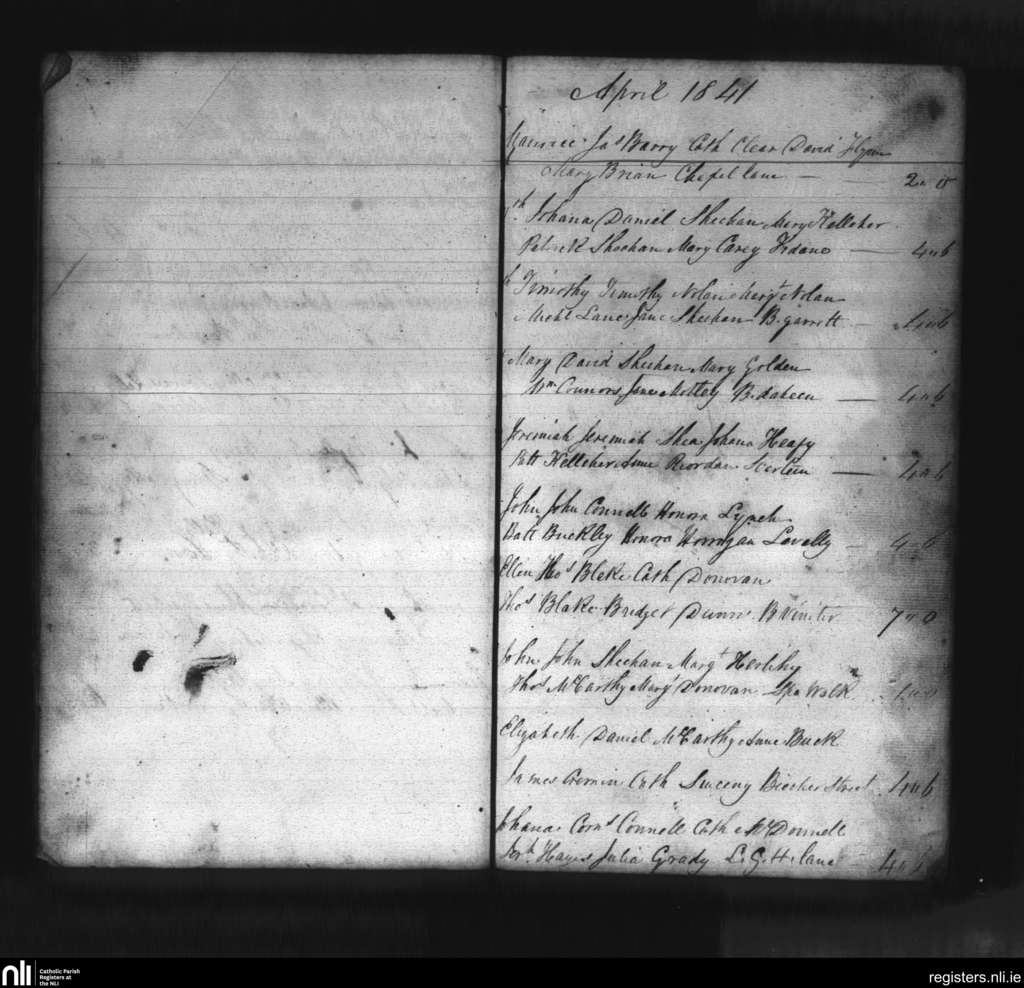 April 1841
Maurice Jas Barry Cath Clear David Flynn
Mary Brian Chapel lane — — 2 " 0
th Johana Daniel Sheehan Mary Kelleher
Patrick Sheehan Mary Carey — 4 " 6
th Timothy Timothy Nolan Margt Nolan
Michl Lane Jane Sheehan B. garrett — 4 " 6
Mary David Sheehan Mary Golden
Wm Connors Jane Mottley B. daheen — 4 " 6
Jeremiah Jeremiah Shea Johana Heafy
Patt Kelleher Anne Riordan Scarteen — 4 " 6
John John Connell Honora Lynch
Batt Buckley Honora Horrigan Lavally — 4 " 6
Ellen Thos Blake Cath Donovan
Thos Blake Bridget Dunn B. Vinster 7 " 0
John John Sheehan Margt Herlihy
Thos McCarthy Margt Donovan Spa Walk
Elizabeth Daniel McCarthy Anne Buck
James Cremin Cath Sweeny Beecher Street 4 " 6
Johana Corns Connell Cath McDonnell
Jerh Hayes Julia Grady L. G. H. lane 4 "
nli
Catholic Parish
Registers at
the NLI
registers.nli.ie